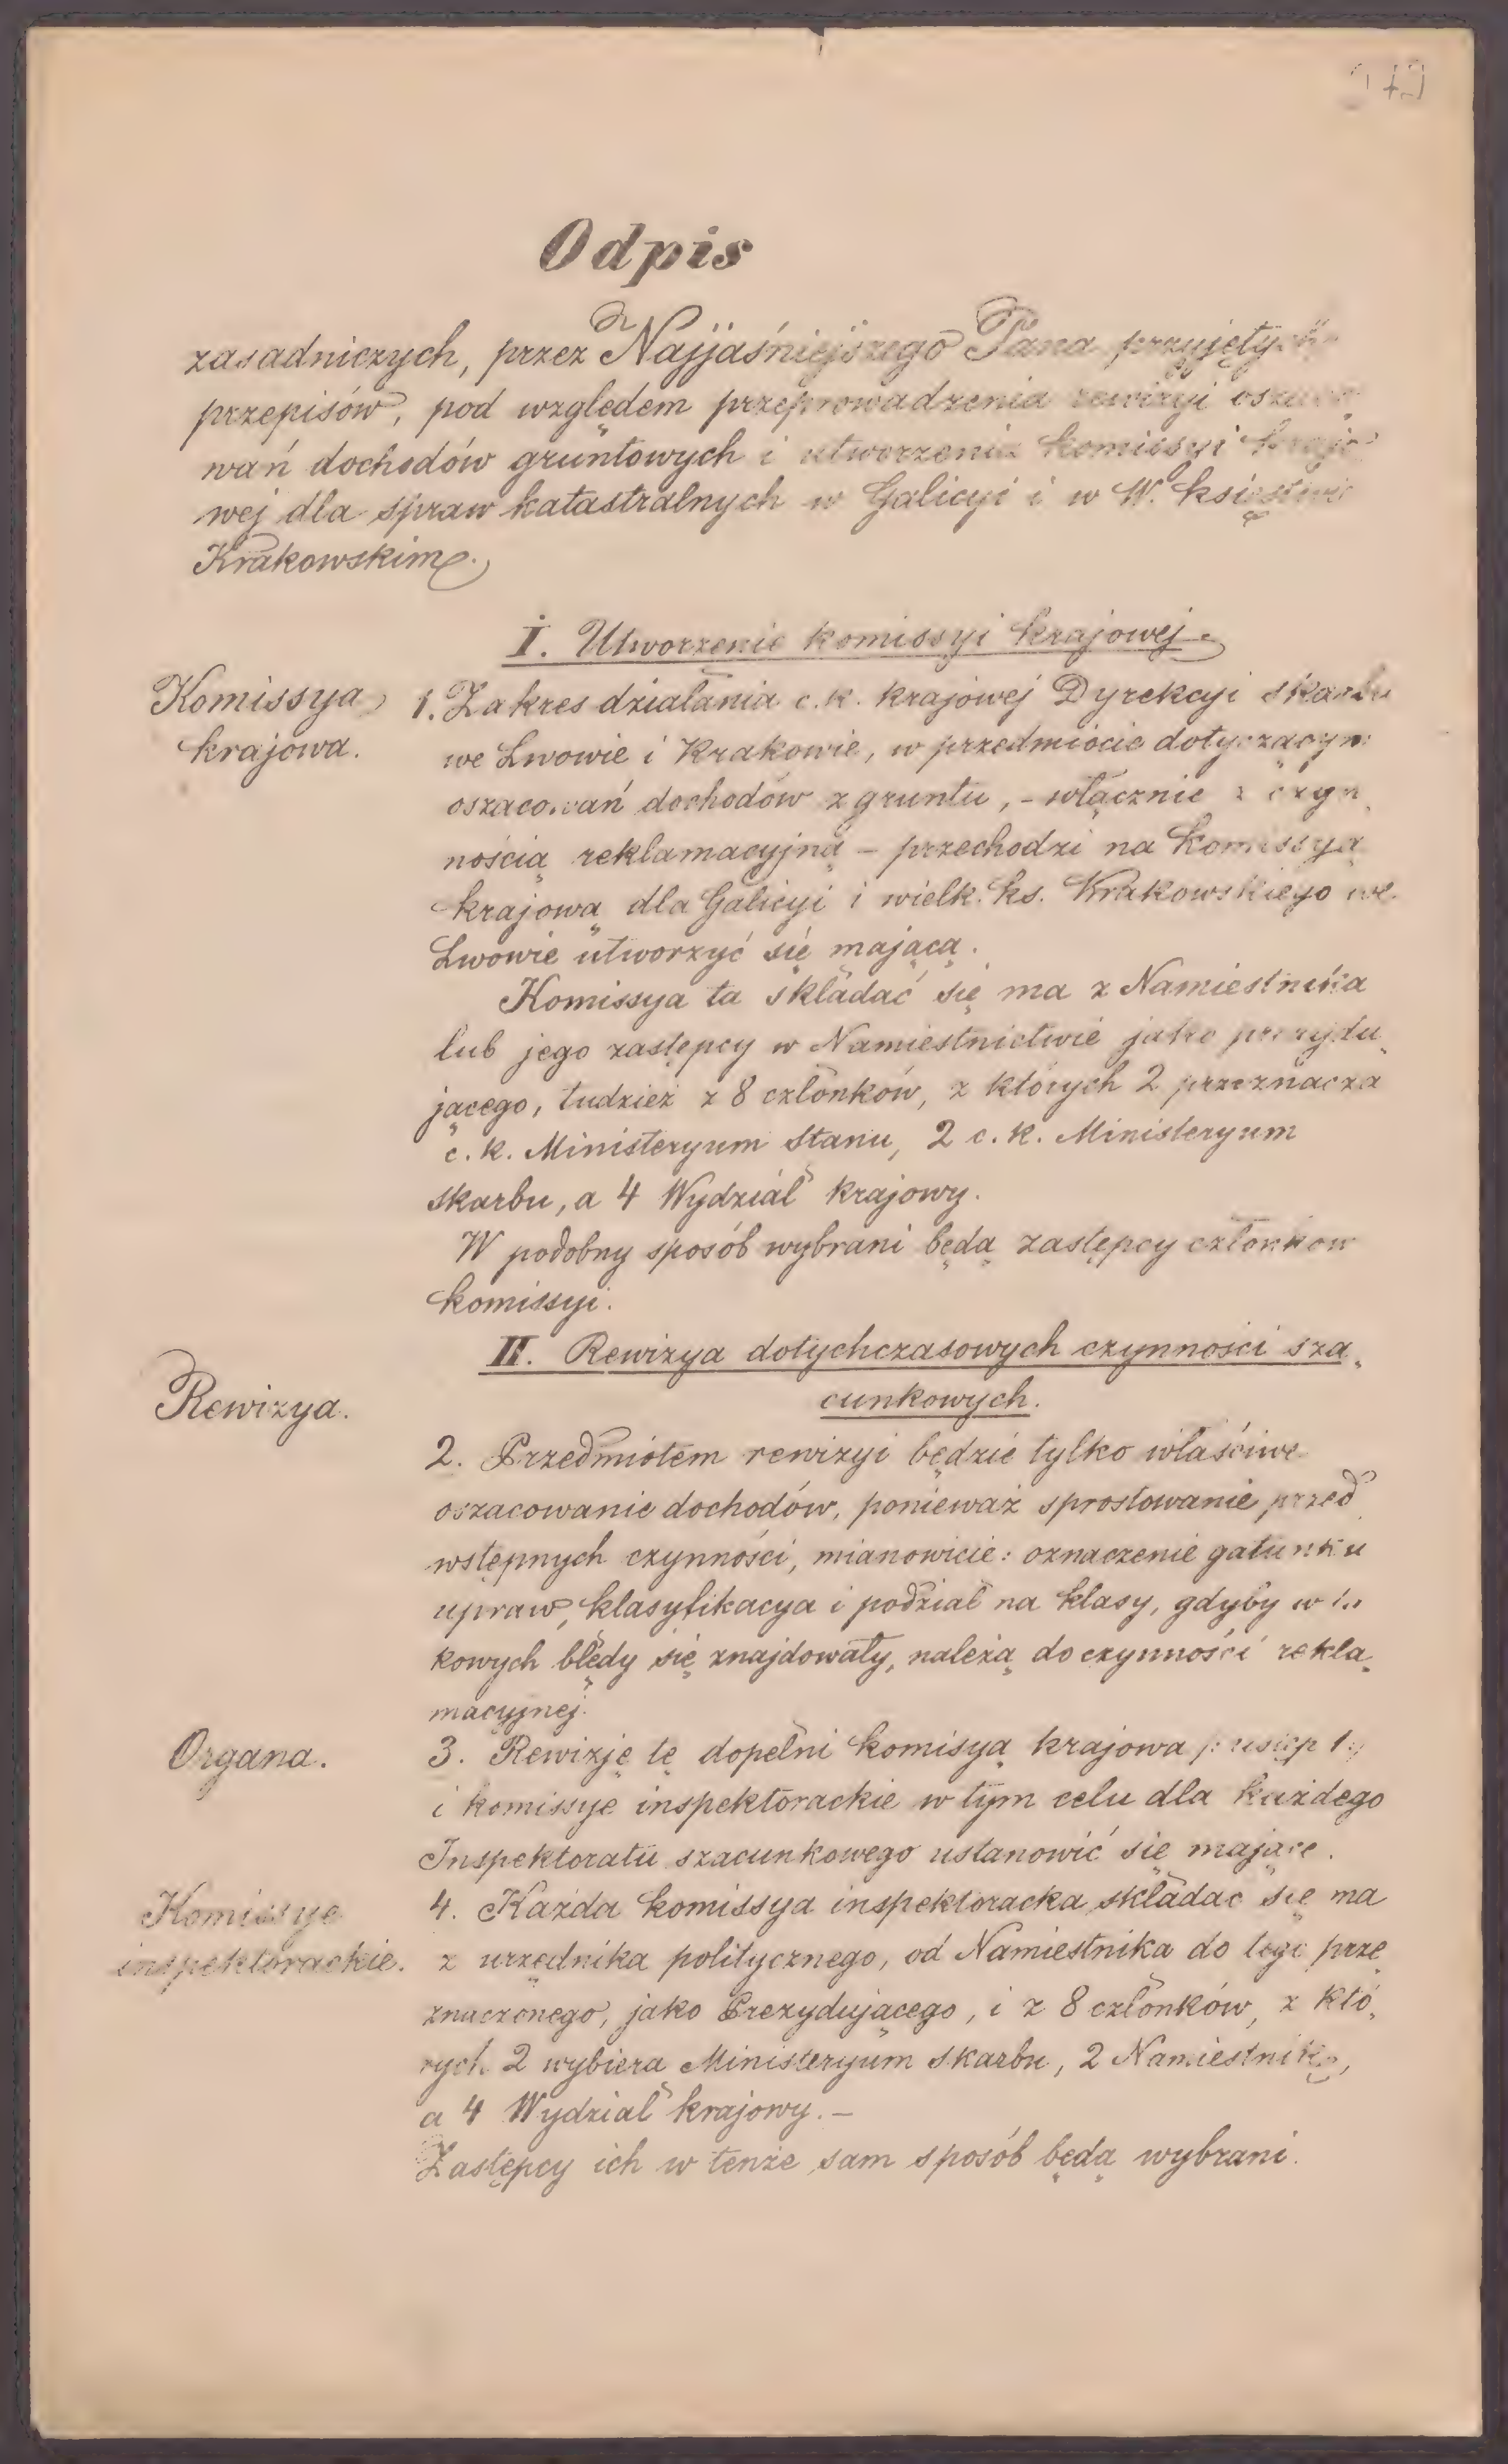 Odpis
zasadniczych, przez Najjaśniejszego Pana przyjętych
przepisów, pod względem przeprowadzenia rewizyi oszaco
wań dochodów gruntowych i utworzenia komissyi krajo
wej dla spraw katastralnych w Galicyi i w W. księstwie
Krakowskim.
I. Utworzenie komissyi krajowej.
Komissya
krajowa.
1. Zakres działania c.k. krajowej Dyrekcyi skarbu
we Lwowie i Krakowie, w przedmiocie dotyczącym
oszacowań dochodów z gruntu, - włącznie z czyn„
nością reklamacyjną - przechodzi na Komissyą
krajową dla Galicyi i wielk. ks. Krakowskiego we
Lwowie utworzyć się mającą.
Komissya ta składać się ma z Namiestnika
lub jego zastępcy w Namiestnictwie jako prezydu„
jącego, tudzież z 8 członków, z których 2 przeznacza
c.k. Ministeryum Stanu, 2 c.k. Ministeryum
skarbu, a 4 Wydział krajowy.
W podobny sposób wybrani będą zastępcy członków
komissyi.
II. Rewizya dotychczasowych czynności sza„
cunkowych.
Rewizya.
2. Przedmiotem rewizyi będzie tylko właściwe
oszacowanie dochodów, ponieważ sprostowanie przed
wstępnych czynności, mianowicie: oznaczenie gatunku
upraw, klasyfikacya i podział na klasy, gdyby w ta
kowych błędy się znajdowały, należą do czynności rekla„
macyjnej.
Organa.
3. Rewizję tę dopełni komisyą krajowa
i komissye inspektorackie w tym celu dla każdego
Inspektoratu szacunkowego ustanowić się mające.
Komissye
inspektorackie.
4. Każda komissya inspektoracka składać się ma
z urzędnika politycznego, od Namiestnika do tego prze„
znaczonego, jako Prezydującego, i z 8 członków, z któ„
rych 2 wybiera Ministeryum skarbu, 2 Namiestnik,
a 4 Wydział krajowy. -
Zastępcy ich w tenże sam sposób będą wybrani.